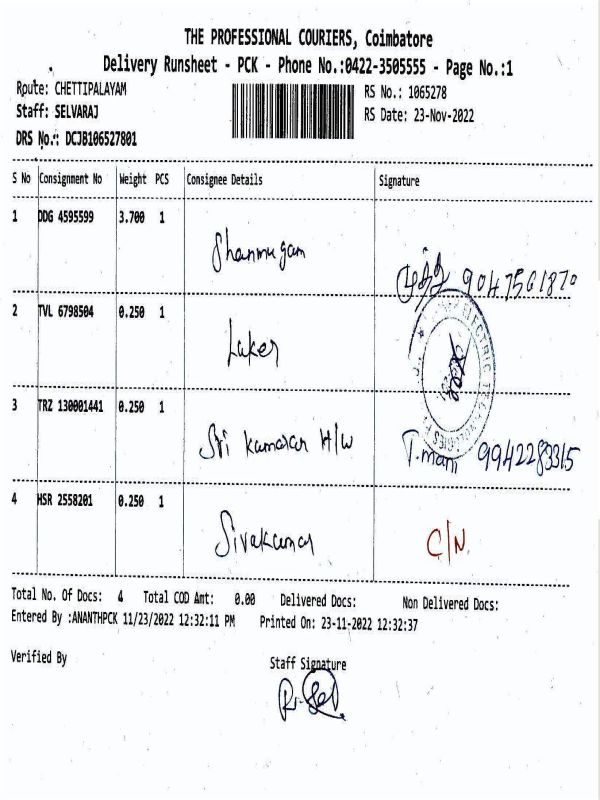 THE PROFESSIONAL COURIERS, Coimbatore
Delivery Runsheet - PCK - Phone No.:0422-3505555 - Page No.:1
Route: CHETTIPALAYAM RS No.: 1065278
Staff: SELVARAJ RS Date: 23-Nov-2022
DRS No.: DCJB106527801
S No Consignment No Weight PCS Consignee Details Signature
1 DDG 4595599 3.700 1
Shanmugam
9047561870
2 TVL 6798504 0.250 1
Laker
ELECTRIC
3 TRZ 130001441 0.250 1
Sri Kumaran H/w T.mani 9942283315
4 HSR 2558201 0.250 1
Sivakumar C/N
Total No. Of Docs: 4 Total COD Amt: 0.00 Delivered Docs: Non Delivered Docs:
Entered By :ANANTHPCK 11/23/2022 12:32:11 PM Printed On: 23-11-2022 12:32:37
Verified By Staff Signature